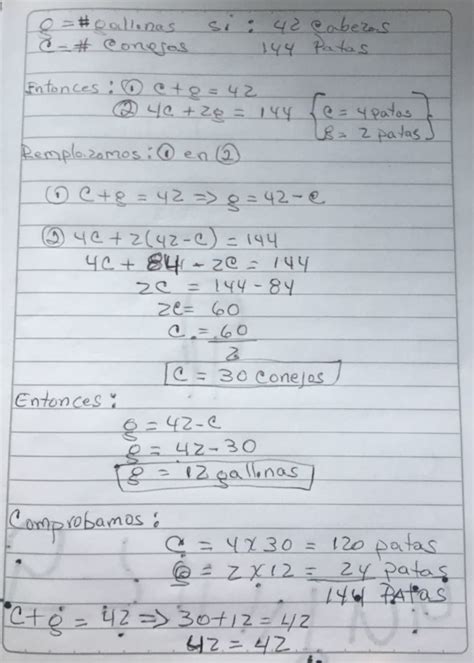 g = # gallinas si : 42 cabezas
c = # conejos 144 Patas
Entonces : ① c + g = 42
② 4c + 2g = 144 { c = 4 patas
g = 2 patas }
Remplazamos : ① en ②
① c + g = 42 => g = 42 - c
② 4c + 2(42 - c) = 144
4c + 84 - 2c = 144
2c = 144 - 84
2c = 60
c = 60
2
c = 30 conejos
Entonces :
g = 42 - c
g = 42 - 30
g = 12 gallinas
Comprobamos :
c = 4 x 30 = 120 patas
g = 2 x 12 = 24 patas
144 PAtas
c + g = 42 => 30 + 12 = 42
42 = 42